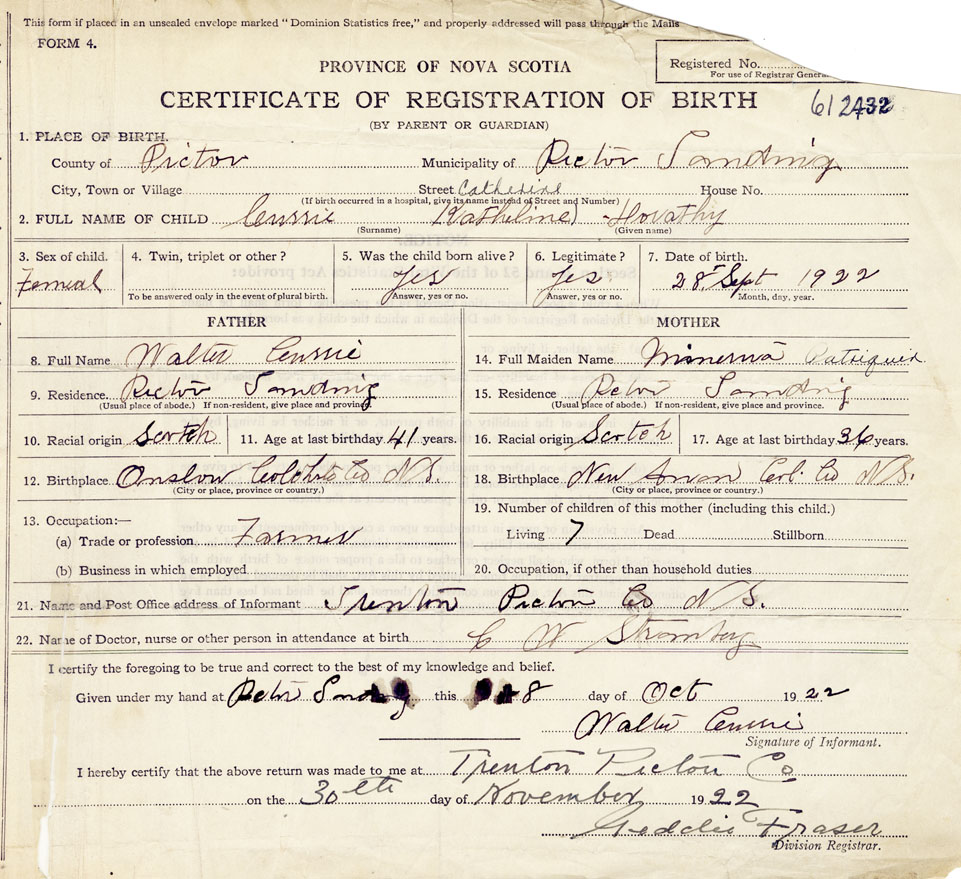 This form if placed in an unsealed envelope marked "Dominion Statistics free," and properly addressed will pass through the Mails
FORM 4.
Registered No.
For use of Registrar General
PROVINCE OF NOVA SCOTIA
CERTIFICATE OF REGISTRATION OF BIRTH 612432
(BY PARENT OR GUARDIAN)
1. PLACE OF BIRTH.
County of Pictou Municipality of Pictou Landing
City, Town or Village Street Catherine House No.
(If birth occurred in a hospital, give its name instead of Street and Number)
2. FULL NAME OF CHILD
(Surname) (Given name)
3. Sex of child. 4. Twin, triplet or other? 5. Was the child born alive? 6. Legitimate? 7. Date of birth.
Femeal Yes Yes. 28 Sept 1922
To be answered only in the event of plural birth. Answer, yes or no. Answer, yes or no. Month, day, year.
FATHER MOTHER
8. Full Name Walter 14. Full Maiden Name Minerva
9. Residence. Pictou Landing 15. Residence Pictou Landing
(Usual place of abode.) If non-resident, give place and province. (Usual place of abode.) If non-resident, give place and province.
10. Racial origin Scotch 11. Age at last birthday 41 years. 16. Racial origin Scotch 17. Age at last birthday 36 years.
12. Birthplace Onslow Co N.S. 18. Birthplace New Annan Col. Co N.S.
(City or place, province or country.) (City or place, province or country.)
13. Occupation:— 19. Number of children of this mother (including this child.)
(a) Trade or profession Farmer Living 7 Dead Stillborn
(b) Business in which employed 20. Occupation, if other than household duties
21. Name and Post Office address of Informant Trenton Pictou Co N.S.
22. Name of Doctor, nurse or other person in attendance at birth C W
I certify the foregoing to be true and correct to the best of my knowledge and belief.
Given under my hand at Pictou this 8 day of Oct 1922
Walter
Signature of Informant.
I hereby certify that the above return was made to me at Trenton Pictou Co
on the 30th day of November 1922
Geddie Fraser
Division Registrar.